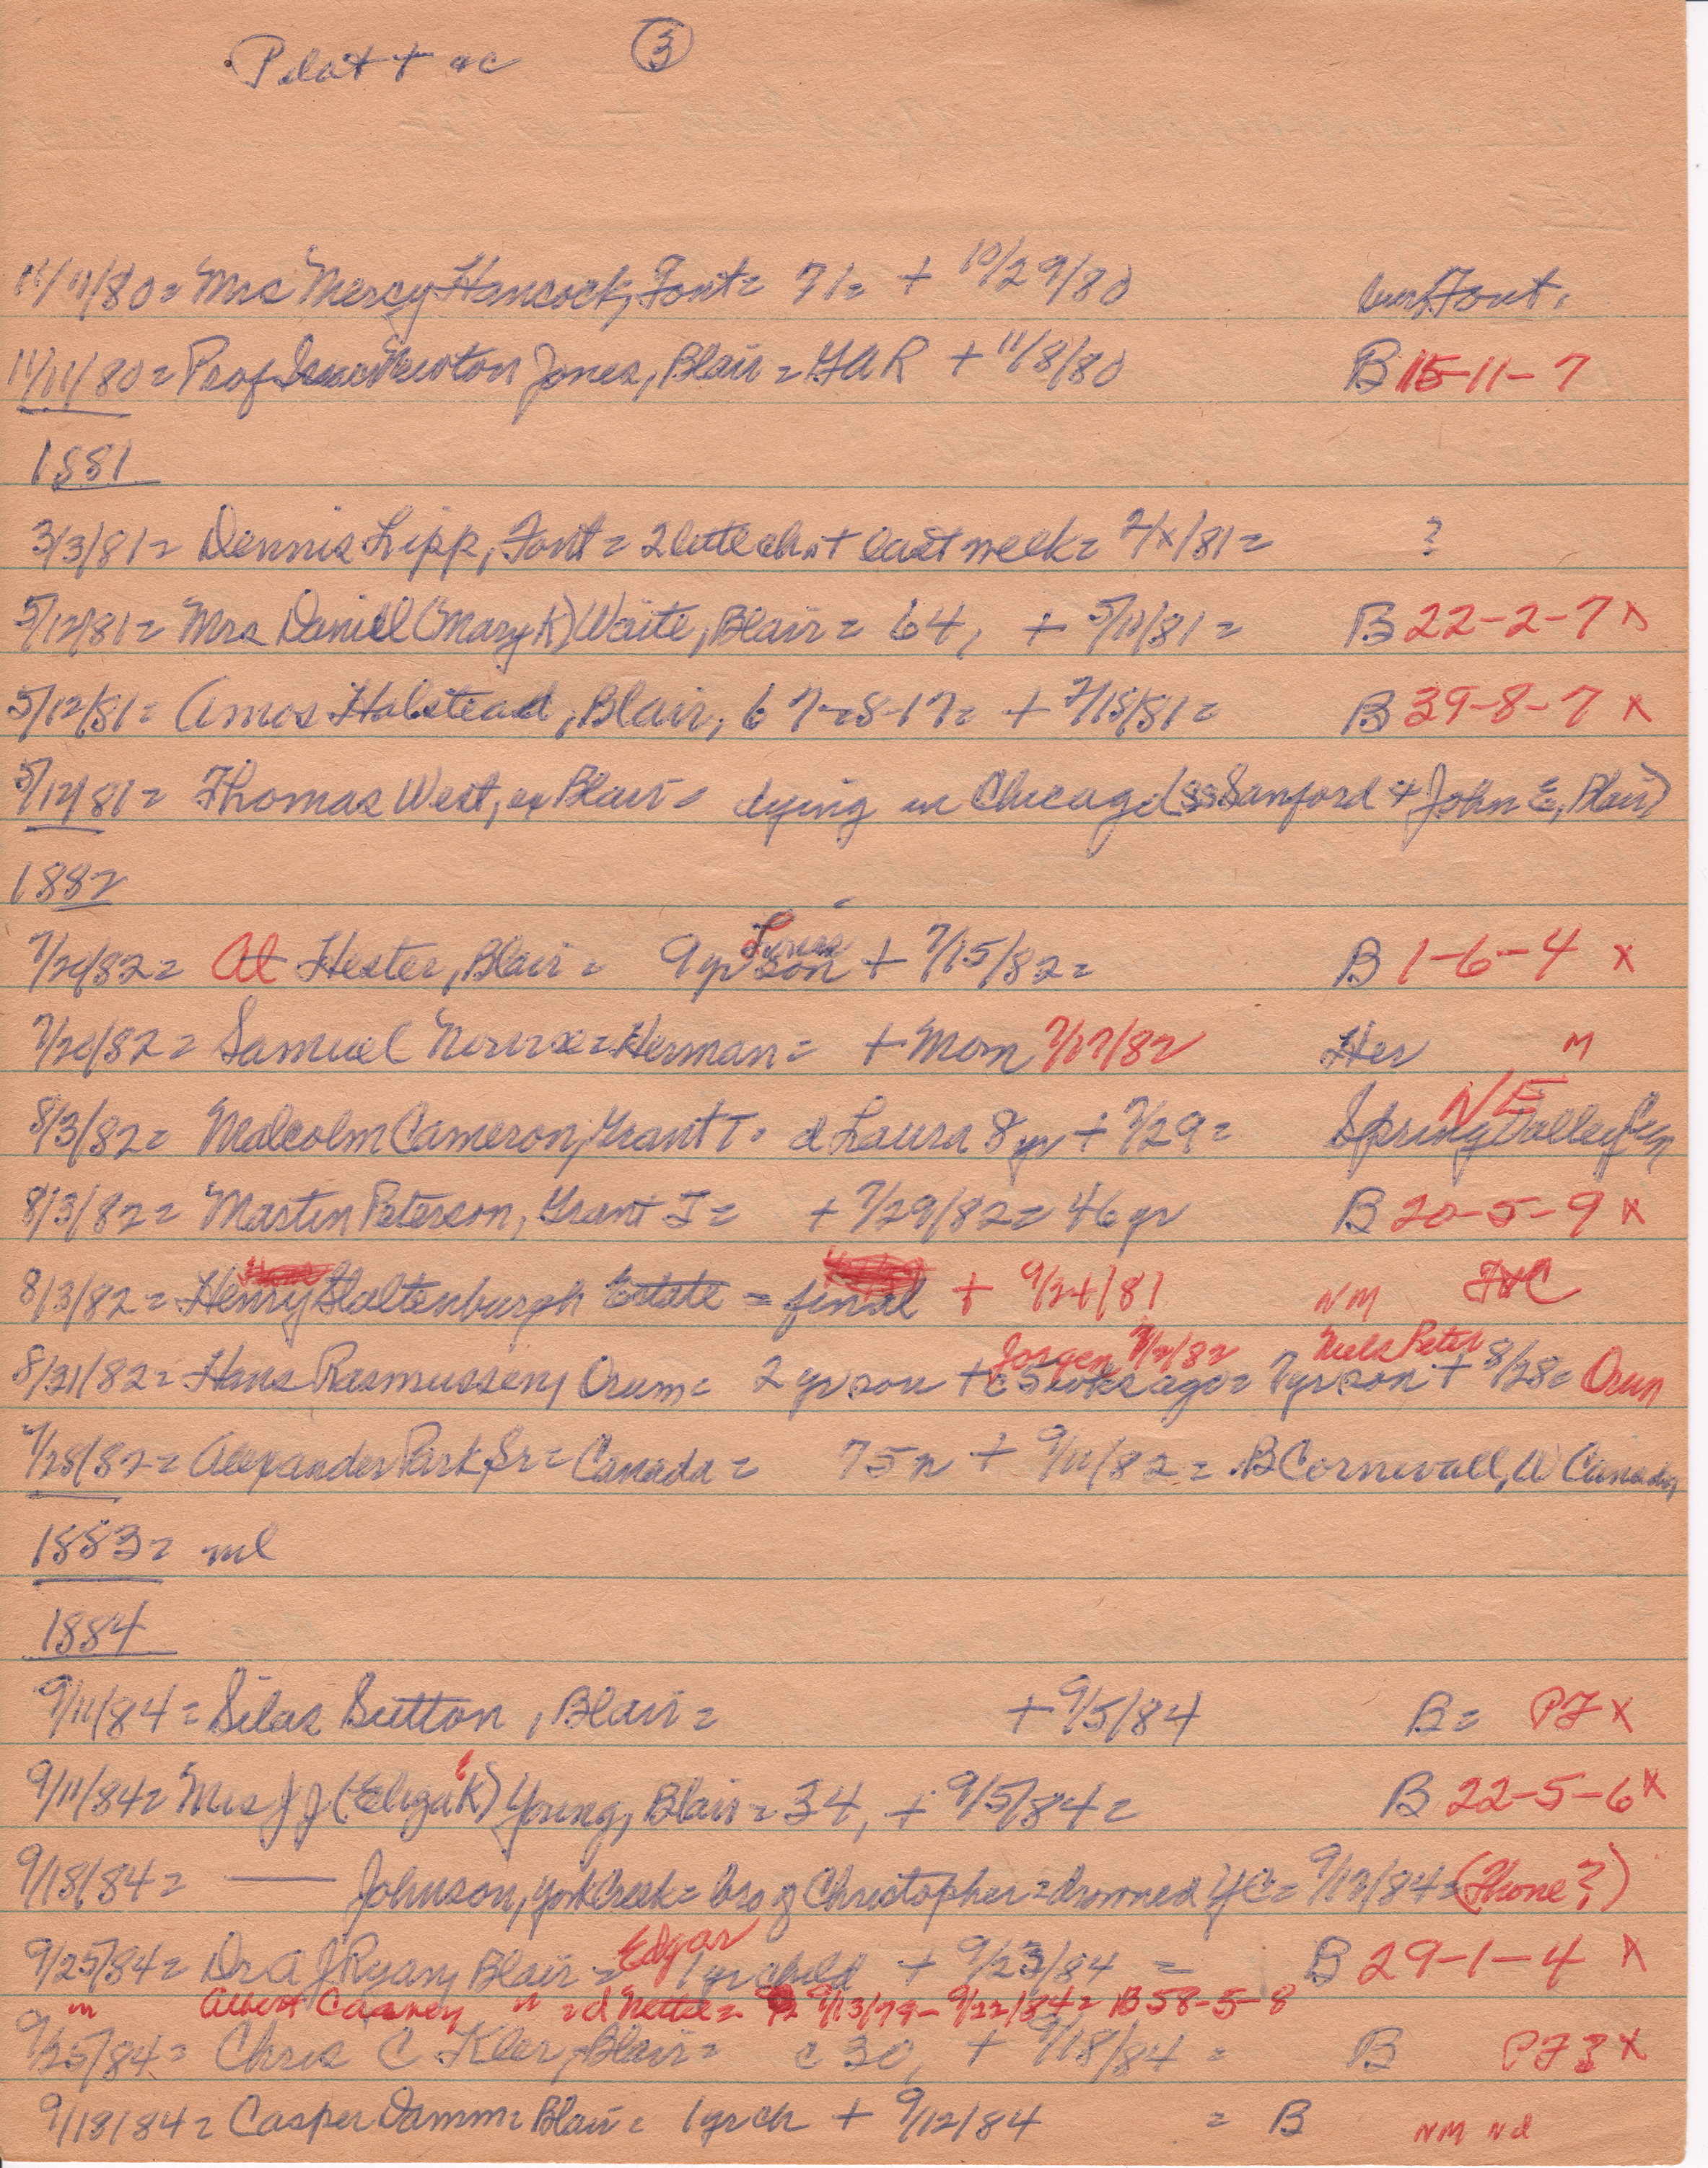 Pilot + ac ③
11/11/80= Mrs Mercy Hancock, Font= 71= + 10/29/80 Font.
11/11/80= Prof Isaac Newton Jones, Blair = GAR + 11/8/80 B 15-11-7
1881
3/3/81= Dennis Lipp, Font= 2 little ch + last week= 2/x/81= ?
5/12/81= Mrs Daniel (Mary K) Waite, Blair= 64, + 5/10/81= B 22-2-7 x
5/12/81= Amos Halstead, Blair, 67-8-17= + 7/15/81= B 39-8-7 x
5/12/81= Thomas West, ex Blair= dying in Chicago (ss Sanford + John E, Blair)
1882
7/20/82= Al Hester, Blair= 9 yr son Louis + 7/15/82= B 1-6-4 x
7/20/82= Samuel = Herman= + Mon 7/17/82 Her M
8/3/82= Malcolm Cameron, Grant T= d Laura 8 yr + 7/29= Spring Valley NE
8/3/82= Martin Peterson, Grant T= + 7/29/82= 46 yr B 20-5-9 x
8/3/82= Henry Haltenburgh Estate = final + 9/24/81 NM
Jorgen 7/ /82 Niels Peter
8/31/82= Hans Rasmussen, Orum= 2 yr son + c 5 wks ago= 7 yr son + 8/28= Orum
9/28/82= Alexander Park, Sr= Canada= 75 + 9/11/82= B Cornwall, W Canada
1883= nil
1884
9/11/84= Silas Sutton, Blair= + 9/5/84 B= PF x
9/11/84= Mrs J J (Eliza K) Young, Blair= 34, + 9/5/84= B 22-5-6 x
9/18/84= — Johnson, York Creek= bro of Christopher= drowned YC= 9/12/84= (Thone?)
9/25/84= Dr A J Ryan, Blair= Edgar 1 yr child + 9/23/84 = B 29-1-4 x
" Albert Carney " = d Nettie= 9/13/79- 9/22/84= B 58-5-8
9/25/84= Chris C Kler, Blair= c 30, + 9/18/84= B PF 3 x
9/18/84= Casper Damm= Blair= 1 yr ch + 9/12/84 = B NM Nd